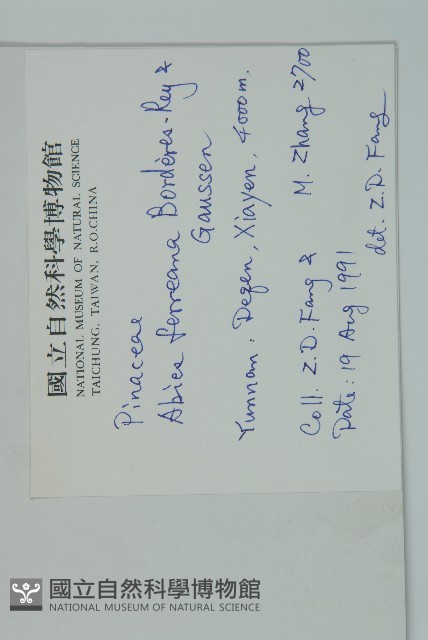 國立自然科學博物館
NATIONAL MUSEUM OF NATURAL SCIENCE
TAICHUNG, TAIWAN, R.O.CHINA
Pinaceae
Abies ferreana Bordères-Rey &
Gaussen
Yunnan: Deqen, Xiayen, 4000m.
Coll. Z.D. Fang & M. Zhang 2700
Date: 19 Aug 1991
det. Z.D. Fang
國立自然科學博物館
NATIONAL MUSEUM OF NATURAL SCIENCE